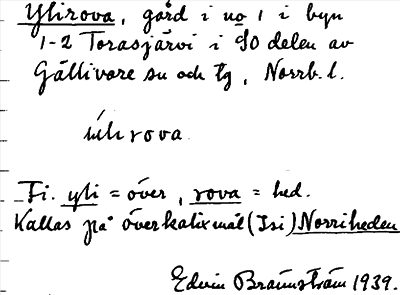 Ylirova, gård i no 1 i byn
1-2 Torasjärvi i SO delen av
Gällivare sn och tg, Norrb. l.
ülirova
Fi. yli = över, rova = hed.
Kallas på överkalixmål (Isi) Norriheden
Edvin Brännström 1939.